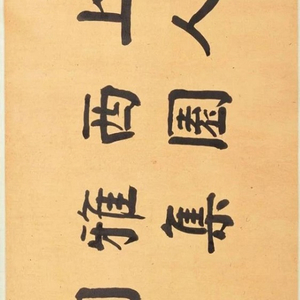 上人
西園
雅集